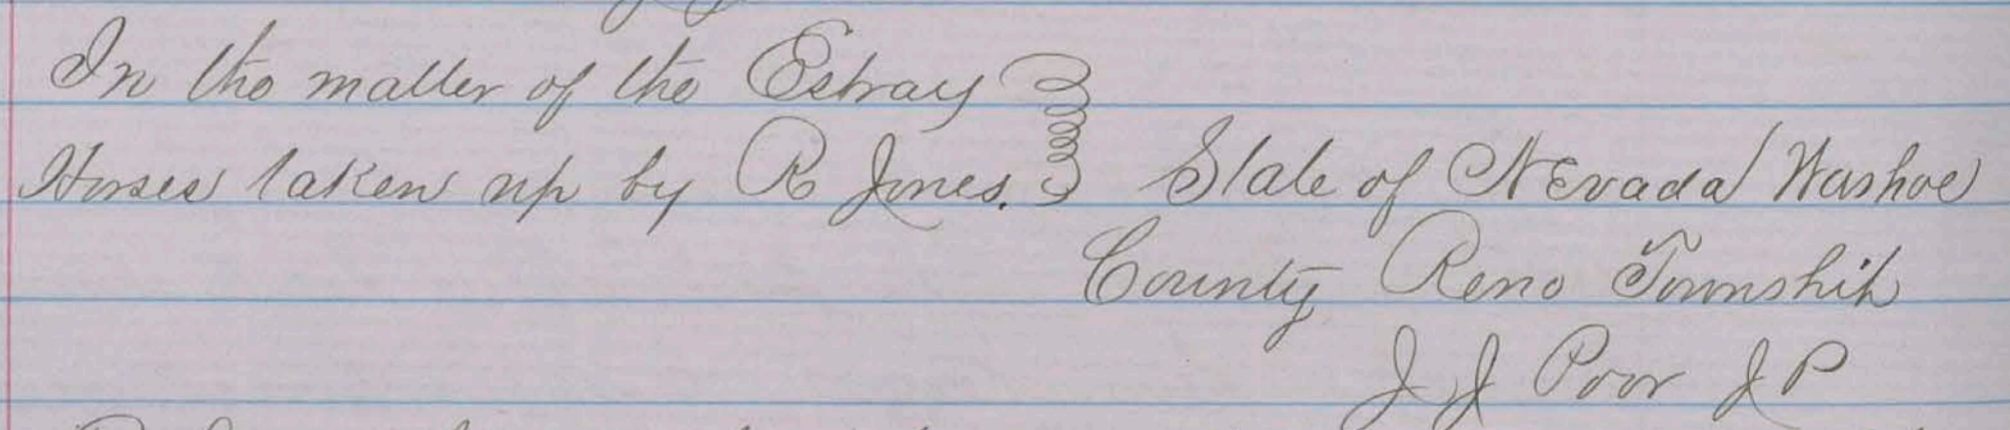 In the matter of the Estray
Horses taken up by R Jones. State of Nevada Washoe
County Reno Township
J J Poor J P